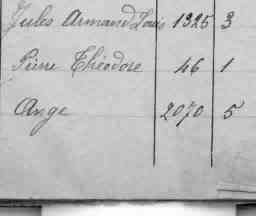 Jules Armand Louis 1325 3
Pierre Théodore 46 1
Ange 2070 5